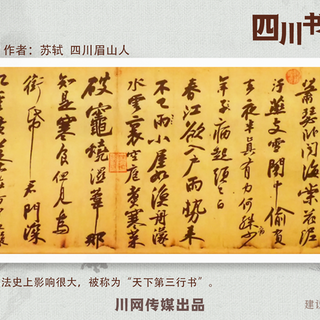 四川书
作者：苏轼 四川眉山人
蕭瑟卧聞海棠花泥
汙燕支雪闇中偷負
去夜半真有力何殊少
年子病起頭已白
春江欲入户雨勢來
不已雨小屋如漁舟濛濛
水雲裏空庖煮寒菜
破竈燒濕葦那
知是寒食但見烏
銜帋君門深
法史上影响很大，被称为“天下第三行书”。
川网传媒出品
建议